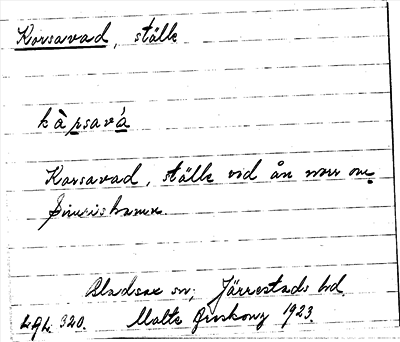 Korsavad, ställe
kàrsavá
Korsavad, ställe vid ån norr om
Simrishamn.
Bladsax sn; Järrestads hd.
320. Malte 1923.